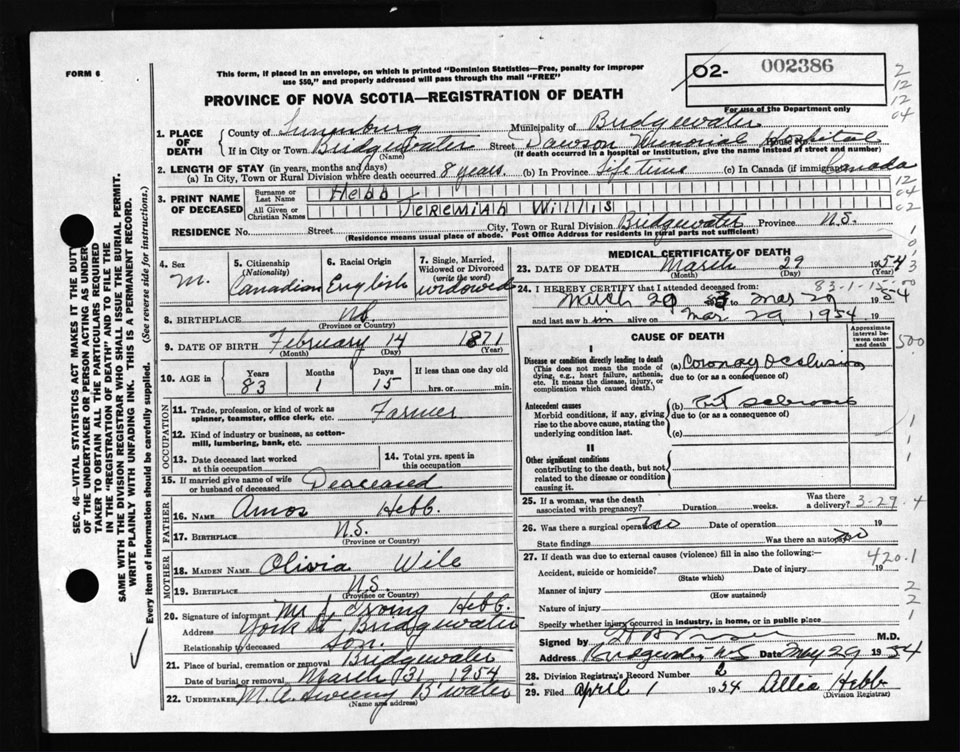 FORM 6
This form, if placed in an envelope, on which is printed "Dominion Statistics—Free, penalty for improper
use $50," and properly addressed will pass through the mail "FREE"
PROVINCE OF NOVA SCOTIA—REGISTRATION OF DEATH
02- 002386
For use of the Department only
2
12
12
04
1. PLACE OF DEATH
County of Lunenburg Municipality of Bridgewater
If in City or Town Bridgewater Street Dawson Memorial Hospital House No.
(Name) (If death occurred in a hospital or institution, give the name instead of street and number)
2. LENGTH OF STAY (in years, months and days)
(a) In City, Town or Rural Division where death occurred 8 years. (b) In Province Life time (c) In Canada (if immigrant) Canada
12
04
02
3. PRINT NAME OF DECEASED
Surname or Last Name Hebb
All Given or Christian Names Jeremiah Willis
RESIDENCE No. Street City, Town or Rural Division Bridgewater Province N.S.
(Residence means usual place of abode. Post Office Address for residents in rural parts not sufficient)
4. Sex M.
5. Citizenship (Nationality) Canadian
6. Racial Origin English
7. Single, Married, Widowed or Divorced (write the word) widowed
8. BIRTHPLACE NS
(Province or Country)
9. DATE OF BIRTH February 14 1871
(Month) (Day) (Year)
10. AGE in Years 83 Months 1 Days 15 If less than one day old hrs. or min.
OCCUPATION
11. Trade, profession, or kind of work as spinner, teamster, office clerk, etc. Farmer
12. Kind of industry or business, as cotton-mill, lumbering, bank, etc.
13. Date deceased last worked at this occupation
14. Total yrs. spent in this occupation
15. If married give name of wife or husband of deceased Deaceased
FATHER
16. NAME Amos Hebb.
17. BIRTHPLACE N.S.
(Province or Country)
MOTHER
18. MAIDEN NAME Olivia Wile
19. BIRTHPLACE N.S.
(Province or Country)
20. Signature of informant Mr J. Irving Hebb.
Address York St Bridgewater
Relationship to deceased son.
21. Place of burial, cremation or removal Bridgewater
Date of burial or removal March 31, 1954
22. UNDERTAKER M. A. Sweeny B'water
(Name and address)
MEDICAL CERTIFICATE OF DEATH
23. DATE OF DEATH March 29 1954
(Month) (Day) (Year)
24. I HEREBY CERTIFY that I attended deceased from: 83-1-15-00
March 29 Mar 29 1954
and last saw him alive on Mar 29 1954 19
CAUSE OF DEATH
Approximate interval between onset and death
500
I
Disease or condition directly leading to death
(This does not mean the mode of dying, e.g., heart failure, asthenia, etc. It means the disease, injury, or complication which caused death.)
(a) Coronary Occlusion
due to (or as a consequence of)
Antecedent causes
Morbid conditions, if any, giving rise to the above cause, stating the underlying condition last.
(b)
due to (or as a consequence of)
(c)
II
Other significant conditions
contributing to the death, but not related to the disease or condition causing it.
25. If a woman, was the death associated with pregnancy? Duration weeks. Was there a delivery? 3-29-4
26. Was there a surgical operation? no Date of operation 19
State findings Was there an autopsy? no
27. If death was due to external causes (violence) fill in also the following:— 420.1
Accident, suicide or homicide? Date of injury 19
(State which)
Manner of injury
(How sustained)
Nature of injury
Specify whether injury occurred in industry, in home, or in public place
Signed by M.D.
Address Bridgewater NS Date May 29 1954
28. Division Registrar's Record Number 2
29. Filed April 1 1954 Hebb
(Division Registrar)
SEC. 46—VITAL STATISTICS ACT MAKES IT THE DUTY
OF THE UNDERTAKER OR PERSON ACTING AS UNDER-
TAKER TO OBTAIN ALL THE PARTICULARS REQUIRED
IN THE "REGISTRATION OF DEATH" AND TO FILE THE
SAME WITH THE DIVISION REGISTRAR WHO SHALL ISSUE THE BURIAL PERMIT.
WRITE PLAINLY WITH UNFADING INK. THIS IS A PERMANENT RECORD.
Every item of information should be carefully supplied. (See reverse side for instructions.)